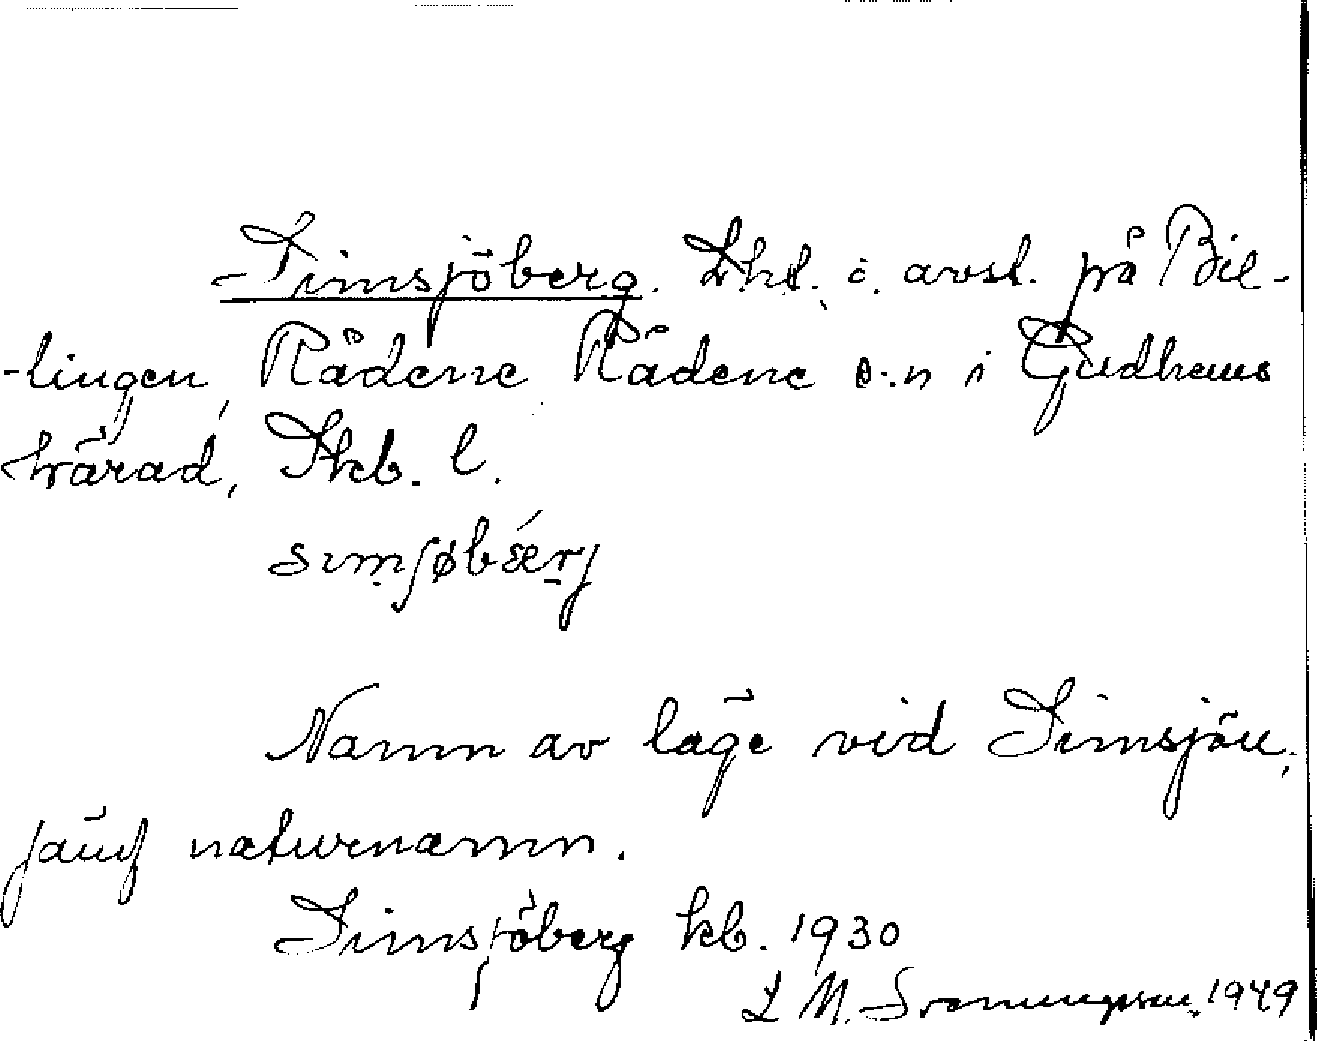 Simsjöberg. Lht. å avsl. på Bil-
-lingen, Rådene Rådene s:n i Gudhems
härad, Skb. l.
sımʃøbǽrj
Namn av läge vid Simsjön,
jämf naturnamn.
Simsjöberg kb. 1930
L M. 1949